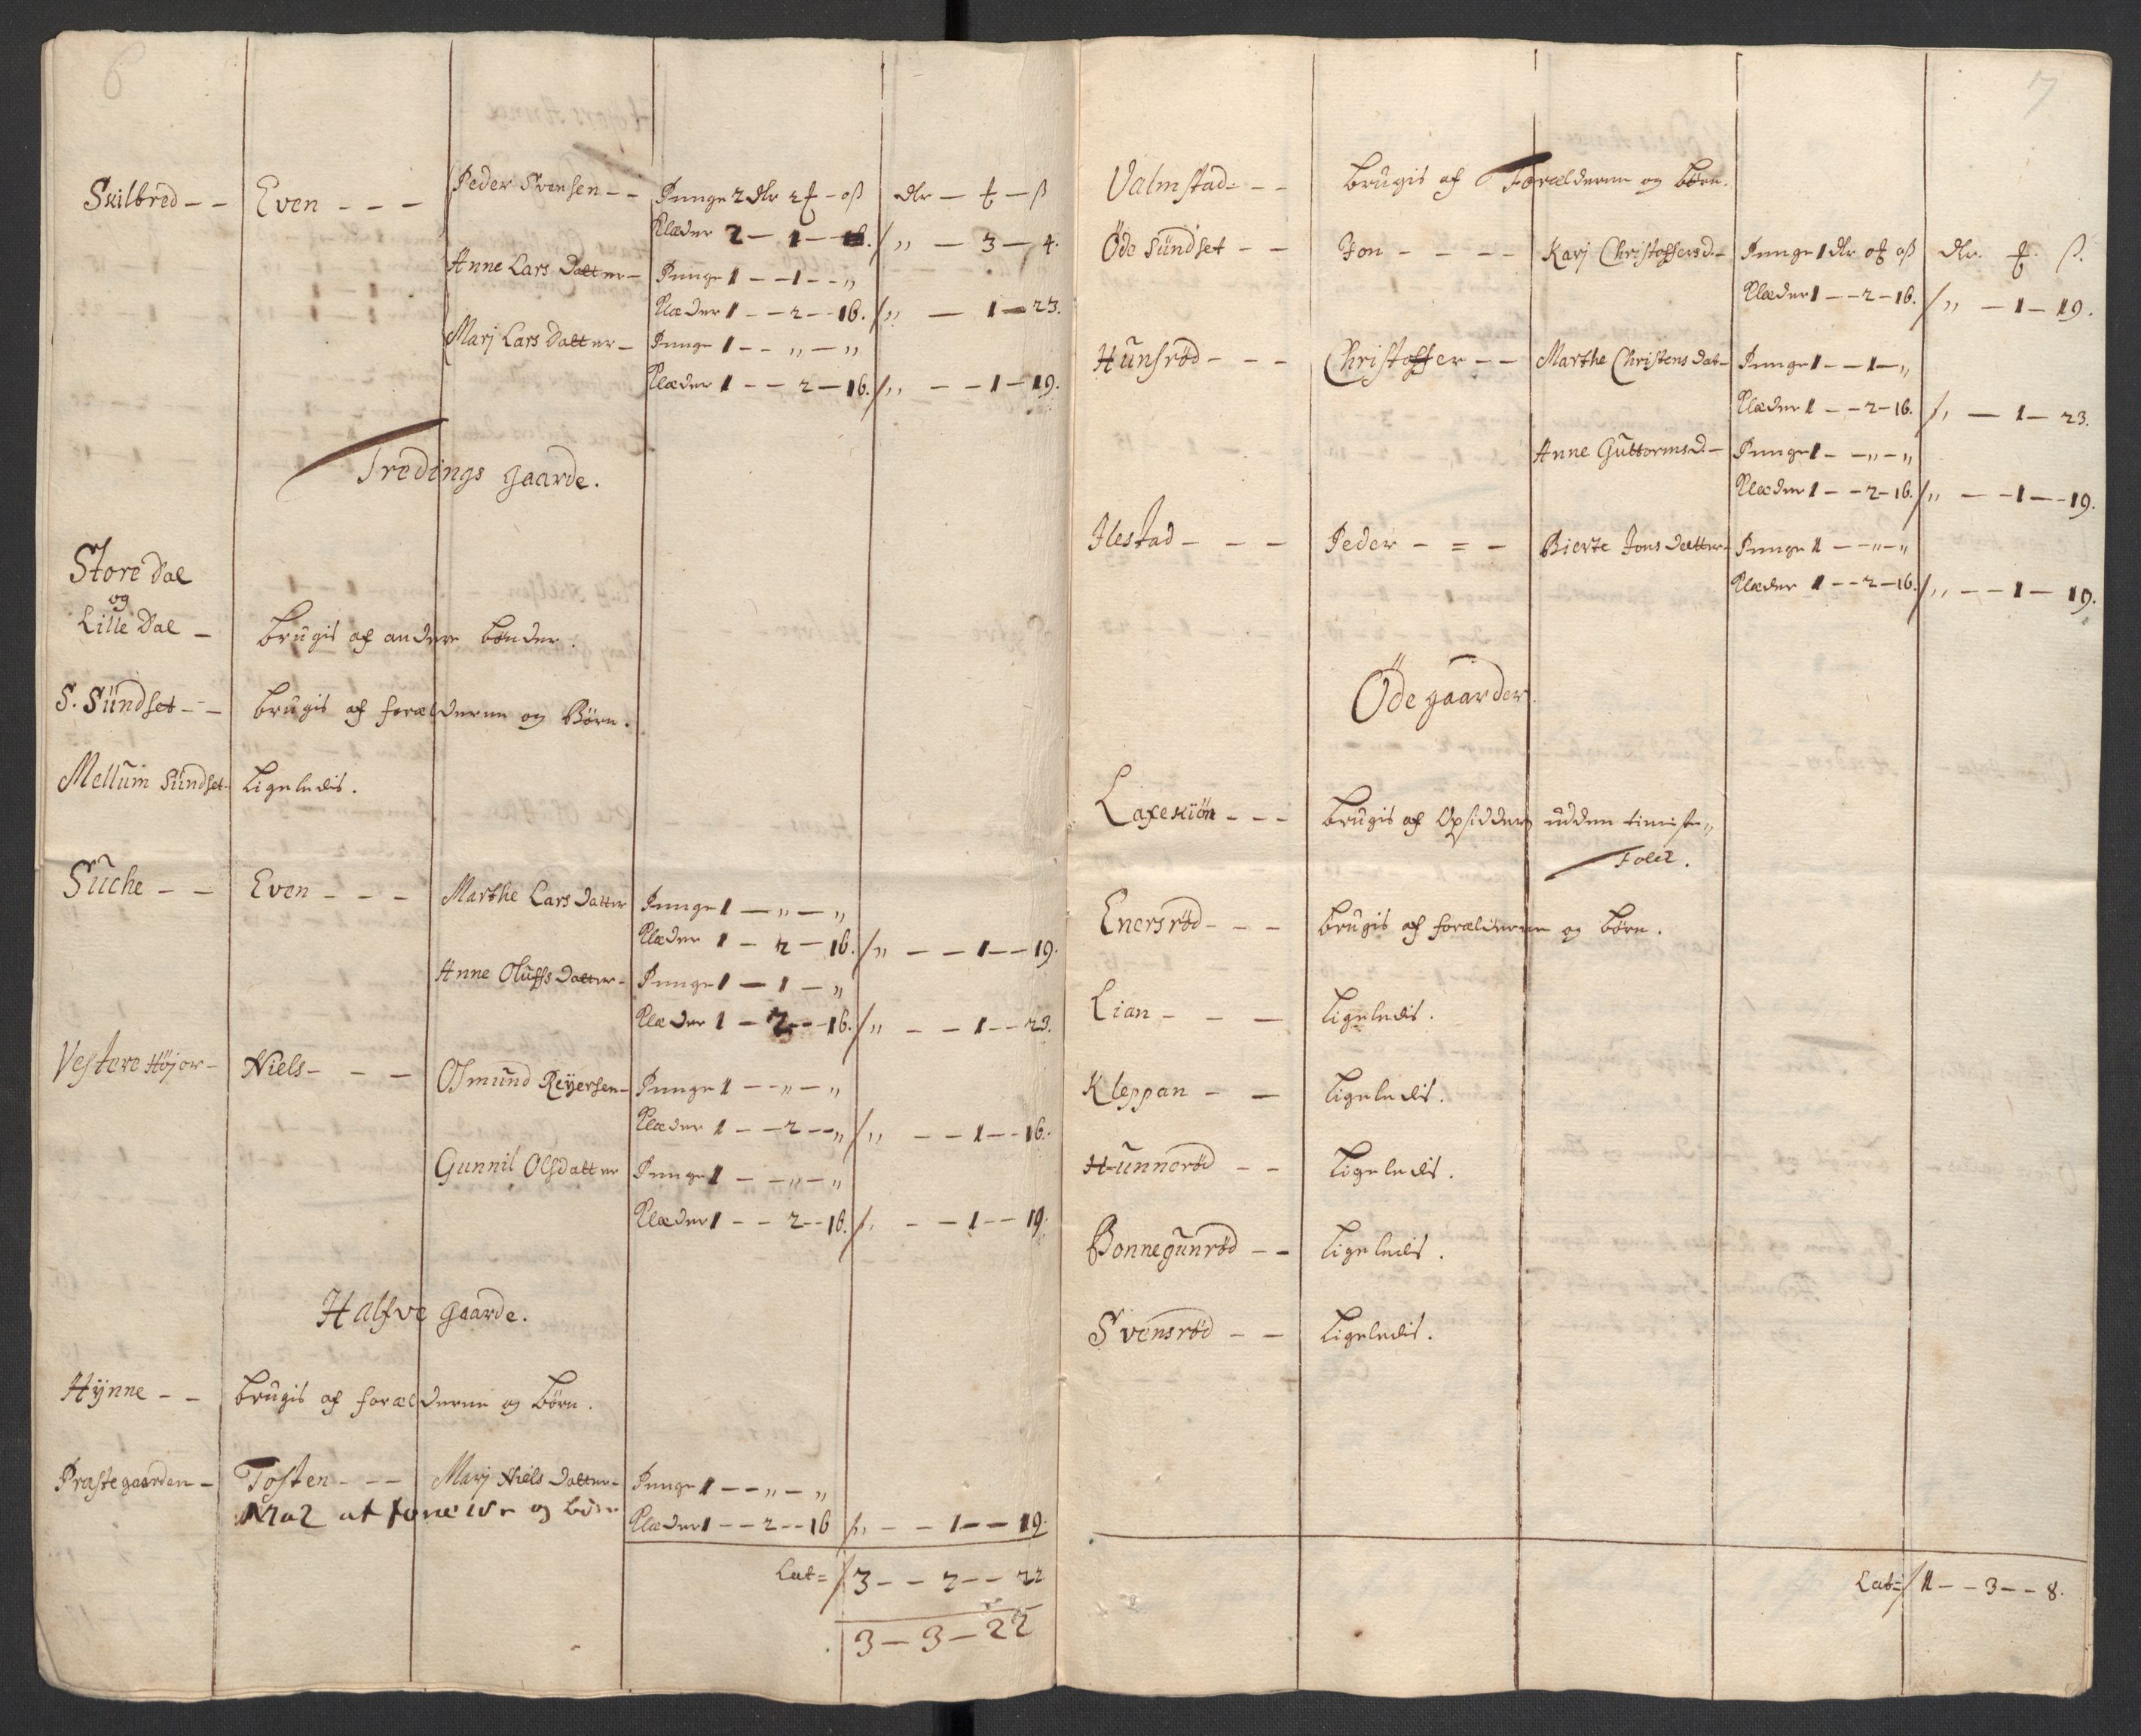 6
Skilbred - - Even - - - Peder Svensen - - Penge 2 dlr 2 ₰ - oß dlr - ₰ - ß
Klæder 2 - 1 - 16. / „ - 3 - 4.
Anne Lars Datter - Penge 1 - - 1 - - „
Klæder 1 - - 2 - - 16. / „ - 1 - 23.
Marj Lars Datter - Penge 1 - - „ - „
Klæder 1 - - 2 - 16. / „ - - 1 - 19.
Tredings gaarde.
Store Dal
og
Lille Dal - brugis af andere bønder.
S. Sündset - - brugis af forælderne og Børn.
Mellüm Sündset - Ligeledis.
Süche - - Even - - - Marthe Lars Datter Penge 1 - „ - „
Klæder 1 - 2 - 16. / „ - - 1 - - 19.
Anne Olüffs Datter - Penge 1 - 1 - „
Klæder 1 - 2 - - 16. / „ - - 1 - - 23.
Vestere Højor - Niels - - - Osmünd Reÿersen - Penge 1 - - „ - „
Klæder 1 - - 2 - - „ / „ - - 1 - - 16.
Gunnil Olsdatter Penge 1 - - „ - „
Klæder 1 - - 2 - - 16. / „ - - 1 - - 19.
Halfve gaarde.
Hÿnne - - brugis af forælderne og børn.
Præstegaarden - Tosten - - - Marj Niels Datter - Penge 1 - - „ - „
og børn Klæder 1 - - 2 - - 16 / „ - - 1 - - 19.
Lat= / 3 - - 2 - - 22
3 - 3 - 22
7
Valmstad - - brugis af Forælderne og børn.
Öde Sündset - - Jon - - - - Karj Christoffersd. - Penge 1 dlr o₰ oß dlr. ₰. ß.
Klæder 1 - - 2 - 16. / „ - 1 - 19.
Hünsrød - - - Christoffer - - Marthe Christens Dat - Penge 1 - - 1 - „
Klæder 1 - - 2 - 16. / „ - 1 - 23.
Anne Güttormsd. - Penge 1 - - „ - „
Klæder 1 - - 2 - 16. / „ - - 1 - - 19.
Ilestad - - - Peder - = - Bierte Jons Datter - Penge 1 - - „ - „
Klæder 1 - - 2 - 16. / „ - - 1 - 19.
Öde gaarder.
Laxekiön - - - brugis af Opsidder udden tieniste„
Folck.
Enersrød - - - brugis af forælderne og børn.
Lian - - - Ligeledis.
Kleppan - - Ligeledis.
Hünnerød - - Ligeledis.
Bonnegünrød - - Ligeledis.
Svensrød - - Ligeledis.
Lat= / 1 - - 3 - - 8.